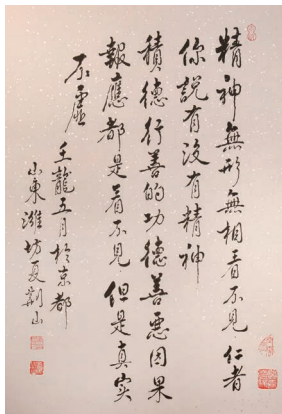 精神無形無相看不見仁者
你說有沒有精神
積德行善的功德善惡因果
報應都是看不見但是真实
不虛
壬龍五月於京都
山東濰坊夏荆山